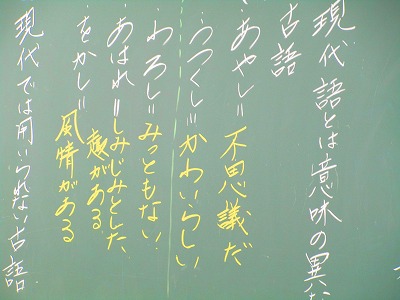 現代語とは意味の異な
古語
・あやし＝不思議だ
・うつくし＝かわいらしい
・わろし＝みっともない
・あはれ＝しみじみとした
感がある
・をかし＝風情がある
現代では用いられない古語